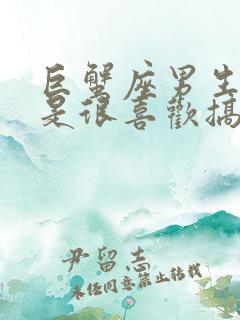 巨蟹座男生
是很喜歡搞
尹留志
未经同意禁止转载